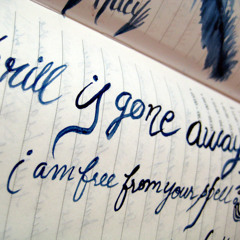 rill is gone away
i am free from your spell